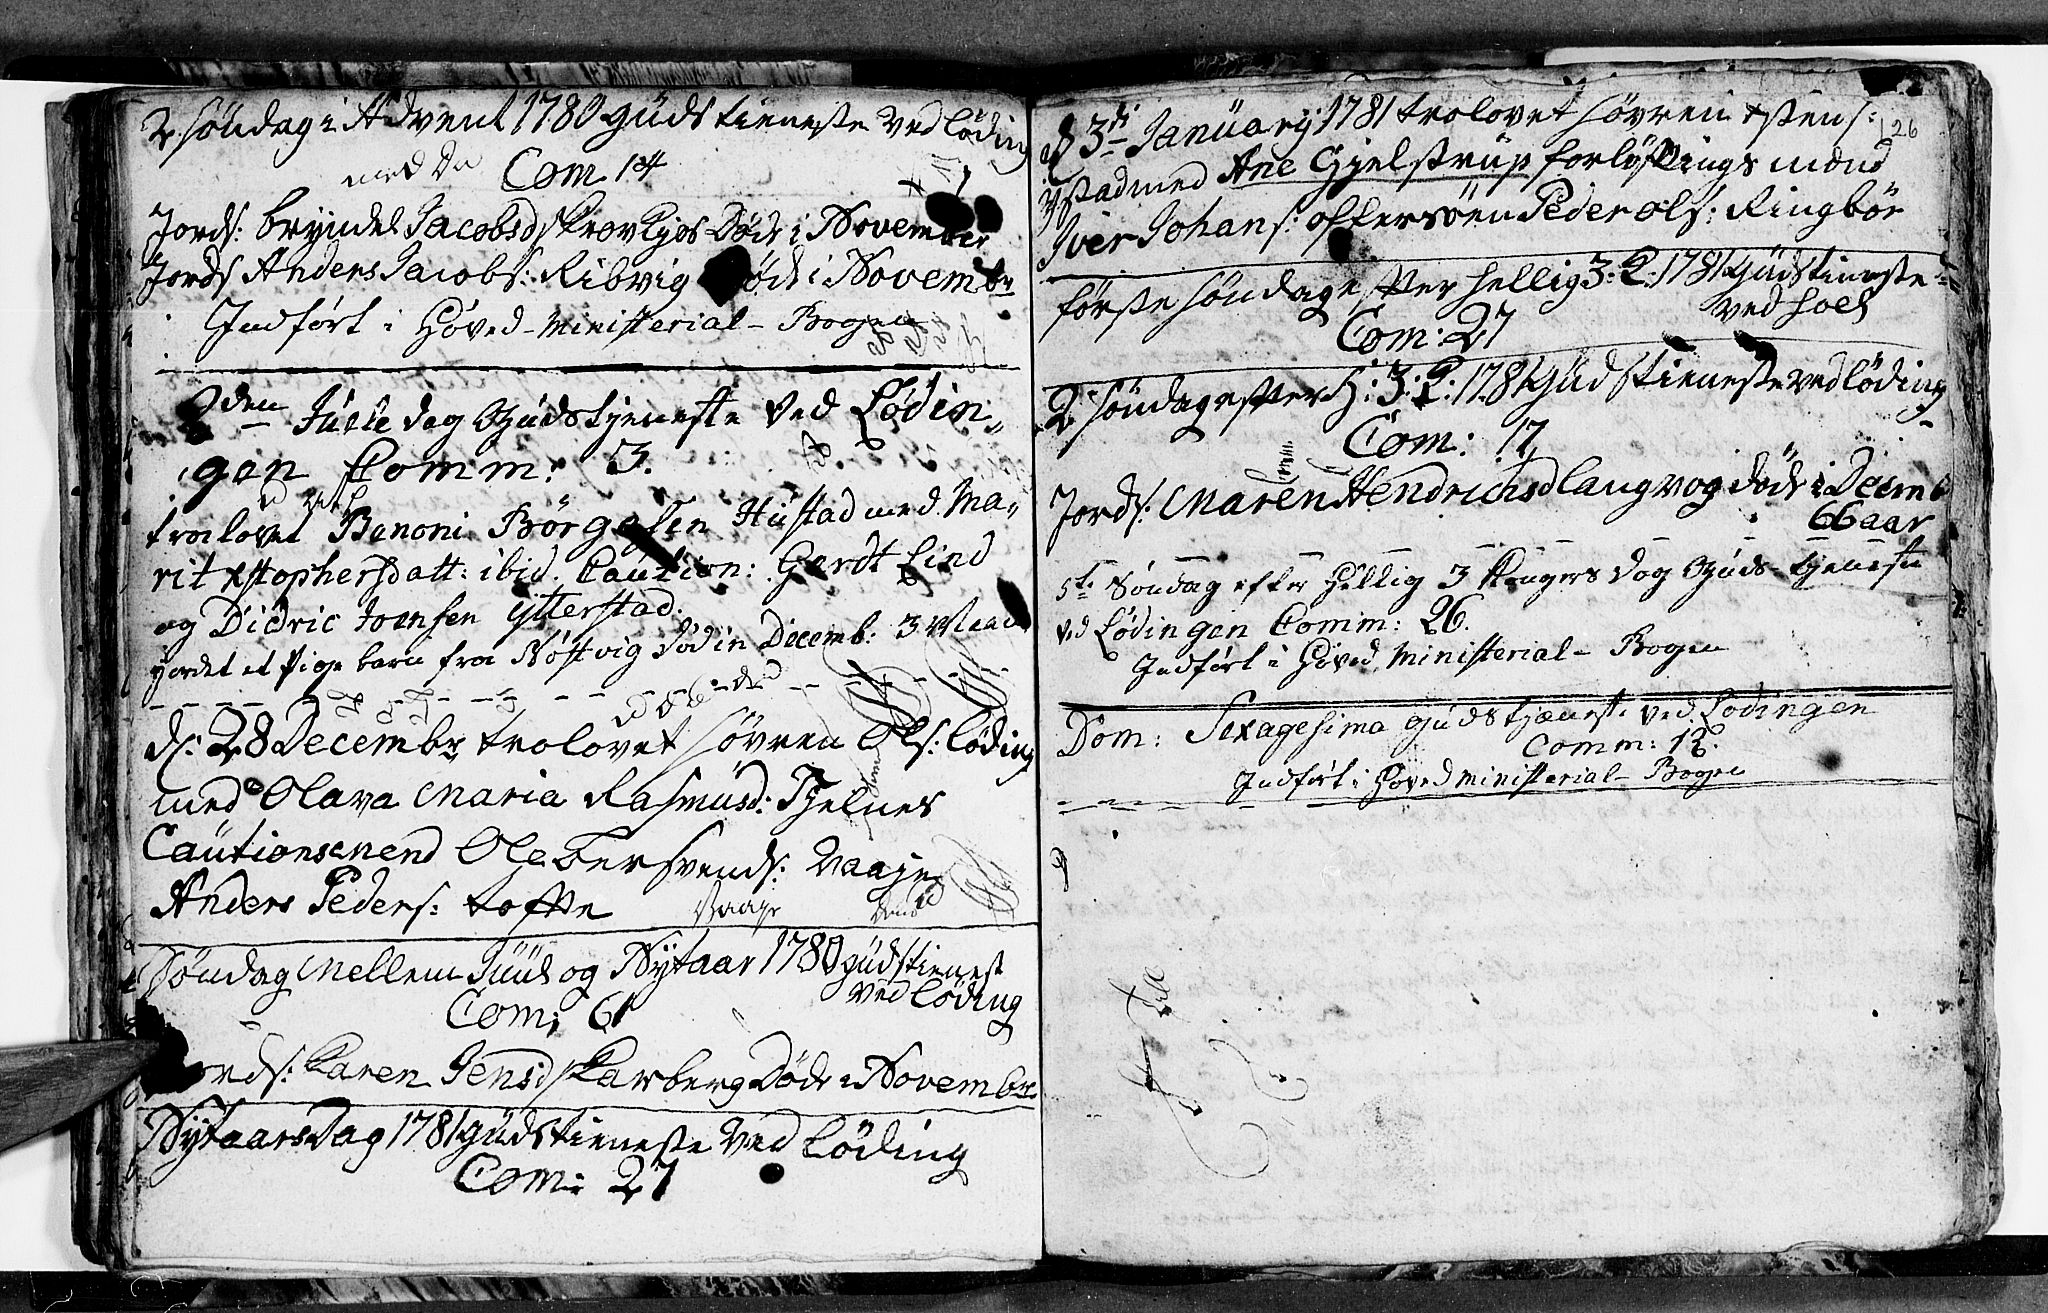 2 Søndag i Advent 1780 Gudstieneste ved Løding
Com 14
Jords: Bryndel Jacobsd Skrovkjos Døde i November
Jords Anders Jacobs: Ribvig Døde i Novembr
Indført i Hoved-Ministerial-Bogen
2den Juule dag Gudstjeneste ved Lødin-
gen Comm: 3.
trolovet Benoni Børgesen Hustad med Ma-
rit Xstophersdatt: ibid. Caution: Gerdt Lind
og Didric Joensen Ytterstad.
Jordet et Pige barn fra Nøstvig død in Decemb: 3
d: 28 Decembr trolovet Søvren Ols: Løding
med Olava Maria Rasmusd: Tjelnes
Cautionsmend Ole Bersvends: Vaaje
Anders Peders: Tofte
Vaaje
Søndag Mellem Juul og Nytaar 1780 Gudstienest
ved Løding
Com: 61
Jords: Karen Jensd Skarberg Døde i Novembr
Nytaarsdag 1781 Gudstieneste ved Løding
Com: 27
126
d 3di January 1781 trolovet Søvren Xstens:
Ystad med Ane Gjelstrup forløftnings mænd
Iver Johans: Offersøen Peder Ols: Ringbøe
første Søndag efter Hellig 3: K: 1781 Gudstieneste
ved Hoel
Com: 27
2 Søndag efter H: 3: K: 1781 Gudstieneste ved Løding
Com: 17
Jords: Maren Hendrichsd Langvog døde i Decemb
66 aar
5te Søndag efter Hellig 3 Kongers dag Guds-tjeneste
ved Lødingen Comm: 26.
Indført i Hoved Ministerial-Bogen
Dom: Sexagesima Gudstjeneste ved Lødingen
Comm: 12.
Indført i Hoved Ministerial-Bogen